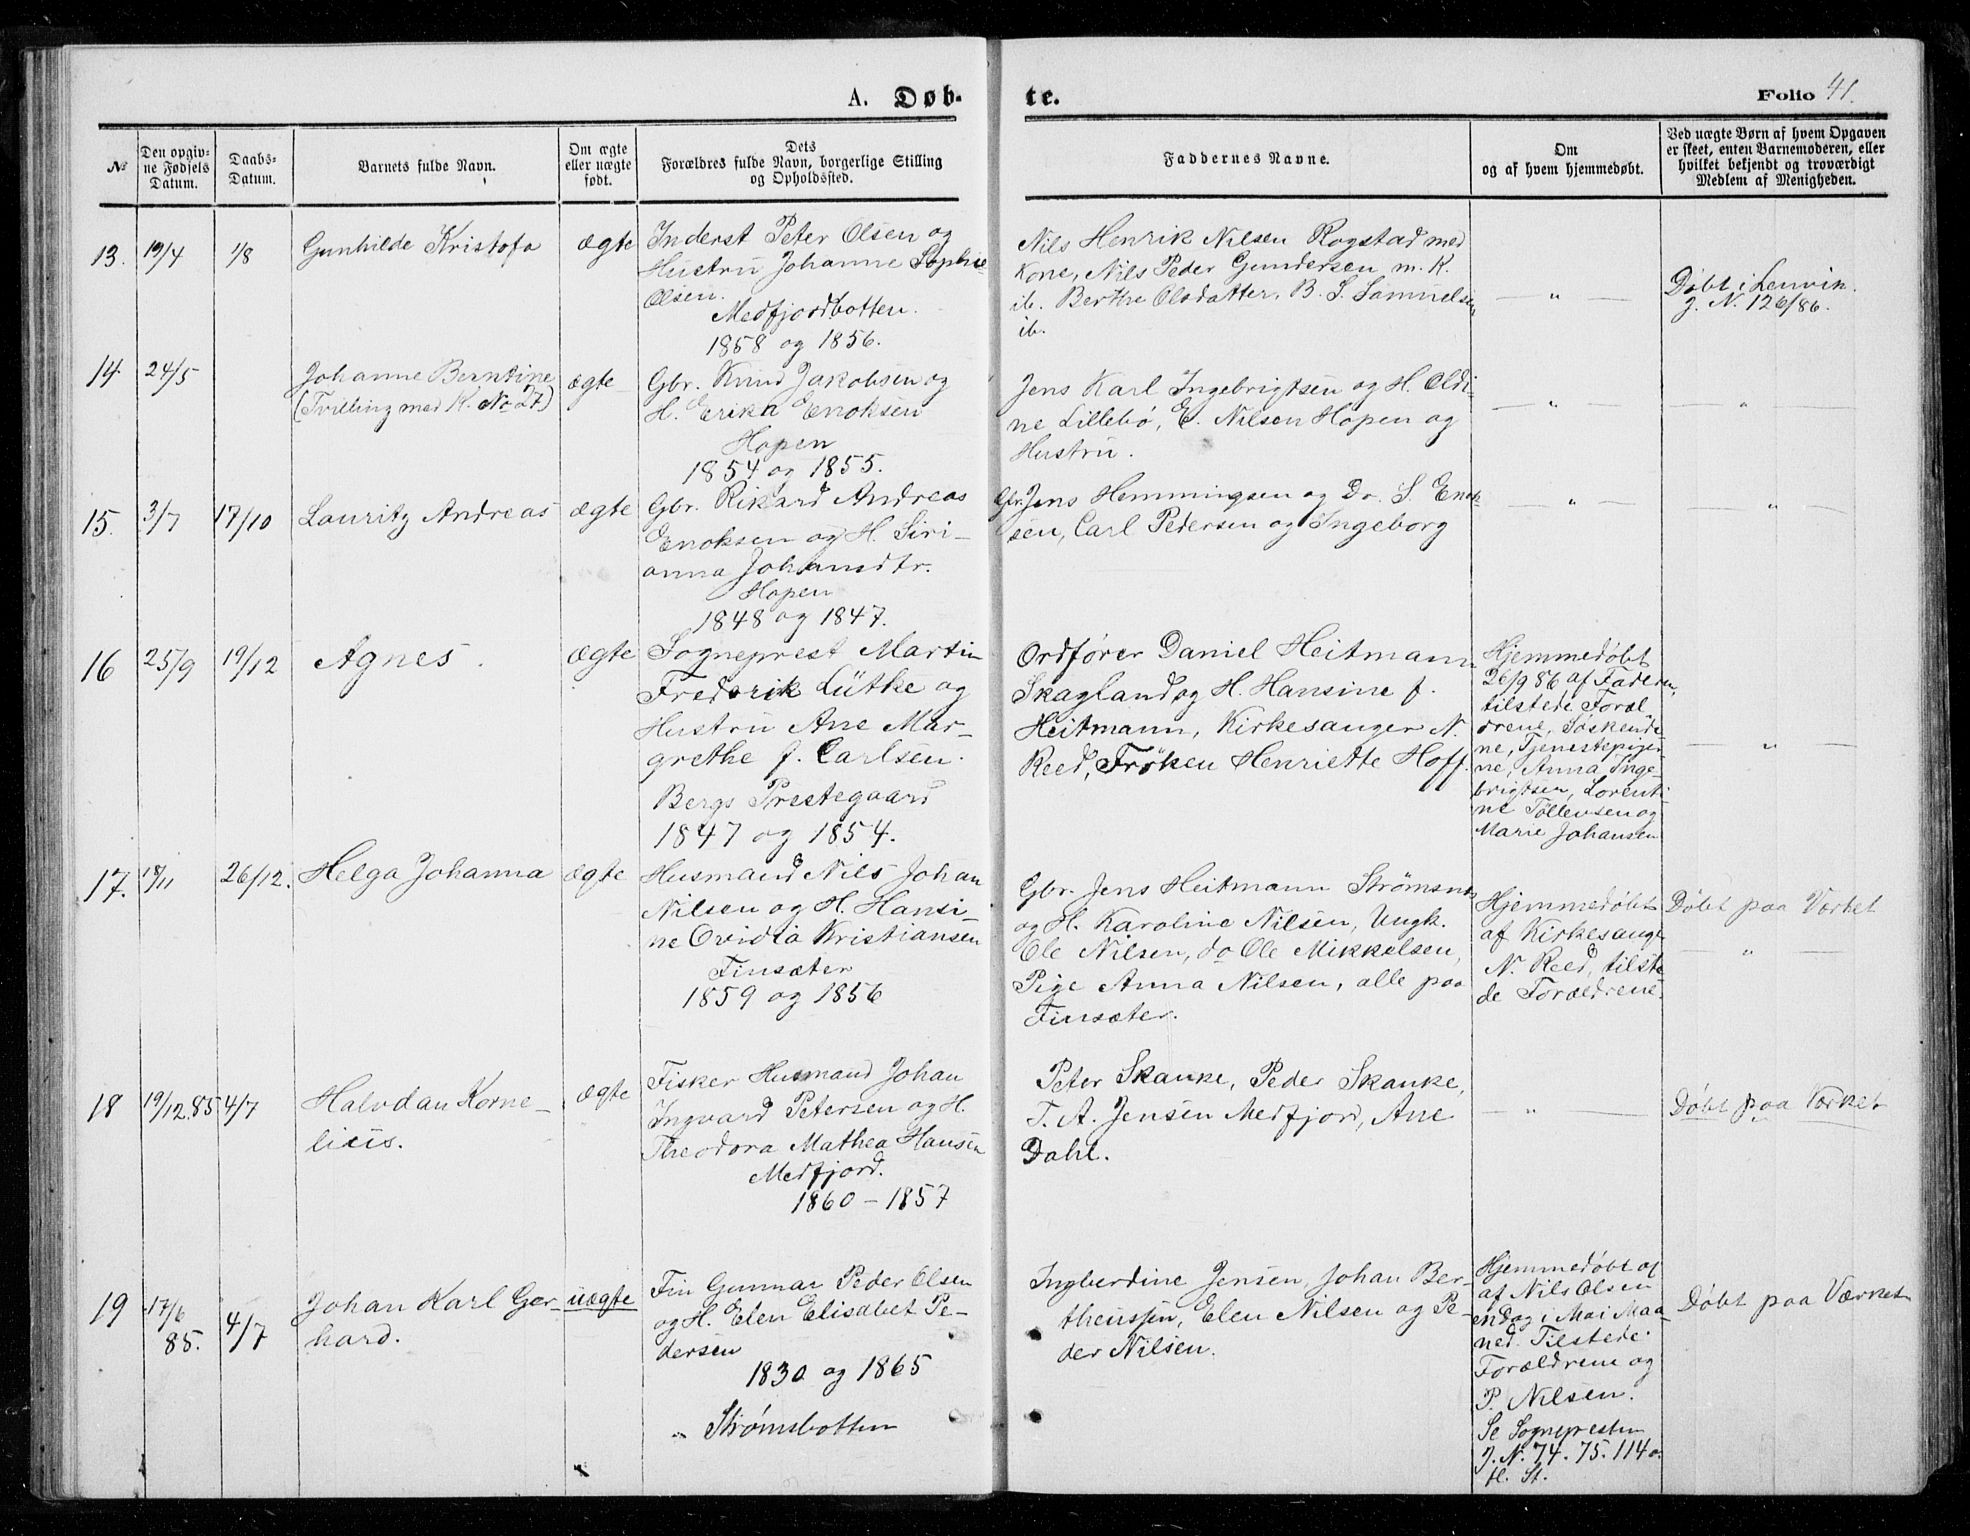 A. Døb-
te.
Folio 41.
№
Den opgiv-
ne Fødsels
Datum.
Daabs-
Datum.
Barnets fulde Navn.
Om ægte
eller uægte
født.
Dets
Forældres fulde Navn, borgerlige Stilling
og Opholdssted.
Faddernes Navne.
Om
og af hvem hjemmedøbt.
Ved uægte Børn af hvem Opgaven
er skeet, enten Barnemoderen, eller
hvilket bekjendt og troværdigt
Medlem af Menigheden.
13. 19/4 1/8 Gunhilde Kristofa ægte
Inderst Peter Olsen og
Hustru Johanne Sophie
Olsen.
Medfjordbotten.
1858 og 1856.
Nils Henrik Nilsen Rogstad med
Kone, Nils Peder Gundersen m. K.
ib. Berthe Olsdatter, B. S. Samuelsen
ib.
— " —
Døbt i Lenvik.
J. N. 126/86.
14 24/5 Johanne Berntine
(Tvilling med K. No 27) ægte
Gbr. Knud Jakobsen og
H. Erika Enoksen
Hopen
1854 og 1855.
Jens Karl Ingebrigtsen og H. Oldi-
ne Lillebø, E. Nilsen Hopen og
Hustru.
— " —
— " —
15. 3/7 17/10 Lauritz Andreas ægte
Gbr. Rikard Andreas
Enoksen og H. Siri-
anna Johansdtr.
Hopen
1848 og 1847.
Gbr. Jens Hemmingsen og Do. S. Enok-
sen, Carl Pedersen og Ingeborg
— " —
— " —
16 25/9 19/12 Agnes. ægte
Sogneprest Martin
Frederik Lütke og
Hustru Ane Mar-
grethe f. Carlsen.
Bergs Prestegaard
1847 og 1854.
Ordfører Daniel Heitmann
Skagland og H. Hansine f.
Heitmann, Kirkesanger N.
Reed, Frøken Henriette Hoff.
Hjemmedøbt
26/9 86 af Faderen,
tilstede Foræl
drene, Søskende-
ne, Tjenestepiger-
ne, Anna Inge-
brigtsen, Lorenti-
ne Tollevsen og
Marie Johansen
— " —
17. 18/11 26/12. Helga Johanna ægte
Husmand Nils Johan
Nilsen og H. Hansi-
ne Ovidia Kristiansen
Finsæter
1859 og 1856
Gbr. Jens Heitmann Strømsnes
og H. Karoline Nilsen, Ungk.
Ole Nilsen, do Ole Mikkelsen,
Pige Anna Nilsen, alle paa
Finsæter.
Hjemmedøbt
af Kirkesanger
N. Reed, tilste
de Forældrene.
Døbt paa Værket
— " —
18 19/12.85 4/7 Halvdan Korne-
lius. ægte
Fisker Husmand Johan
Ingvard Petersen og H.
Theodora Mathea Hansen
Medfjord.
1860 – 1857
Peter Skanke, Peder Skanke,
T. A. Jensen Medfjord, Ane
Dahl.
— " —
Døbt paa Værket
19 17/6
85. 4/7 Johan Karl Ger-
hard. uægte
Fin Gunnar Peder Olsen
og H. Elen Elisabet Pe-
dersen
1830 og 1865
" Strømsbotten
Ingberdine Jensen, Johan Ber-
theussen, Elen Nilsen og Pe-
der Nilsen.
Hjemmedøbt af
af Nils Olsen
endog i Mai Maa-
ned. Tilstede
Forældrene og
P. Nilsen.
Se Sognepresten
J. N. 74. 75. 114 o.
fl. St.
Døbt paa Værket